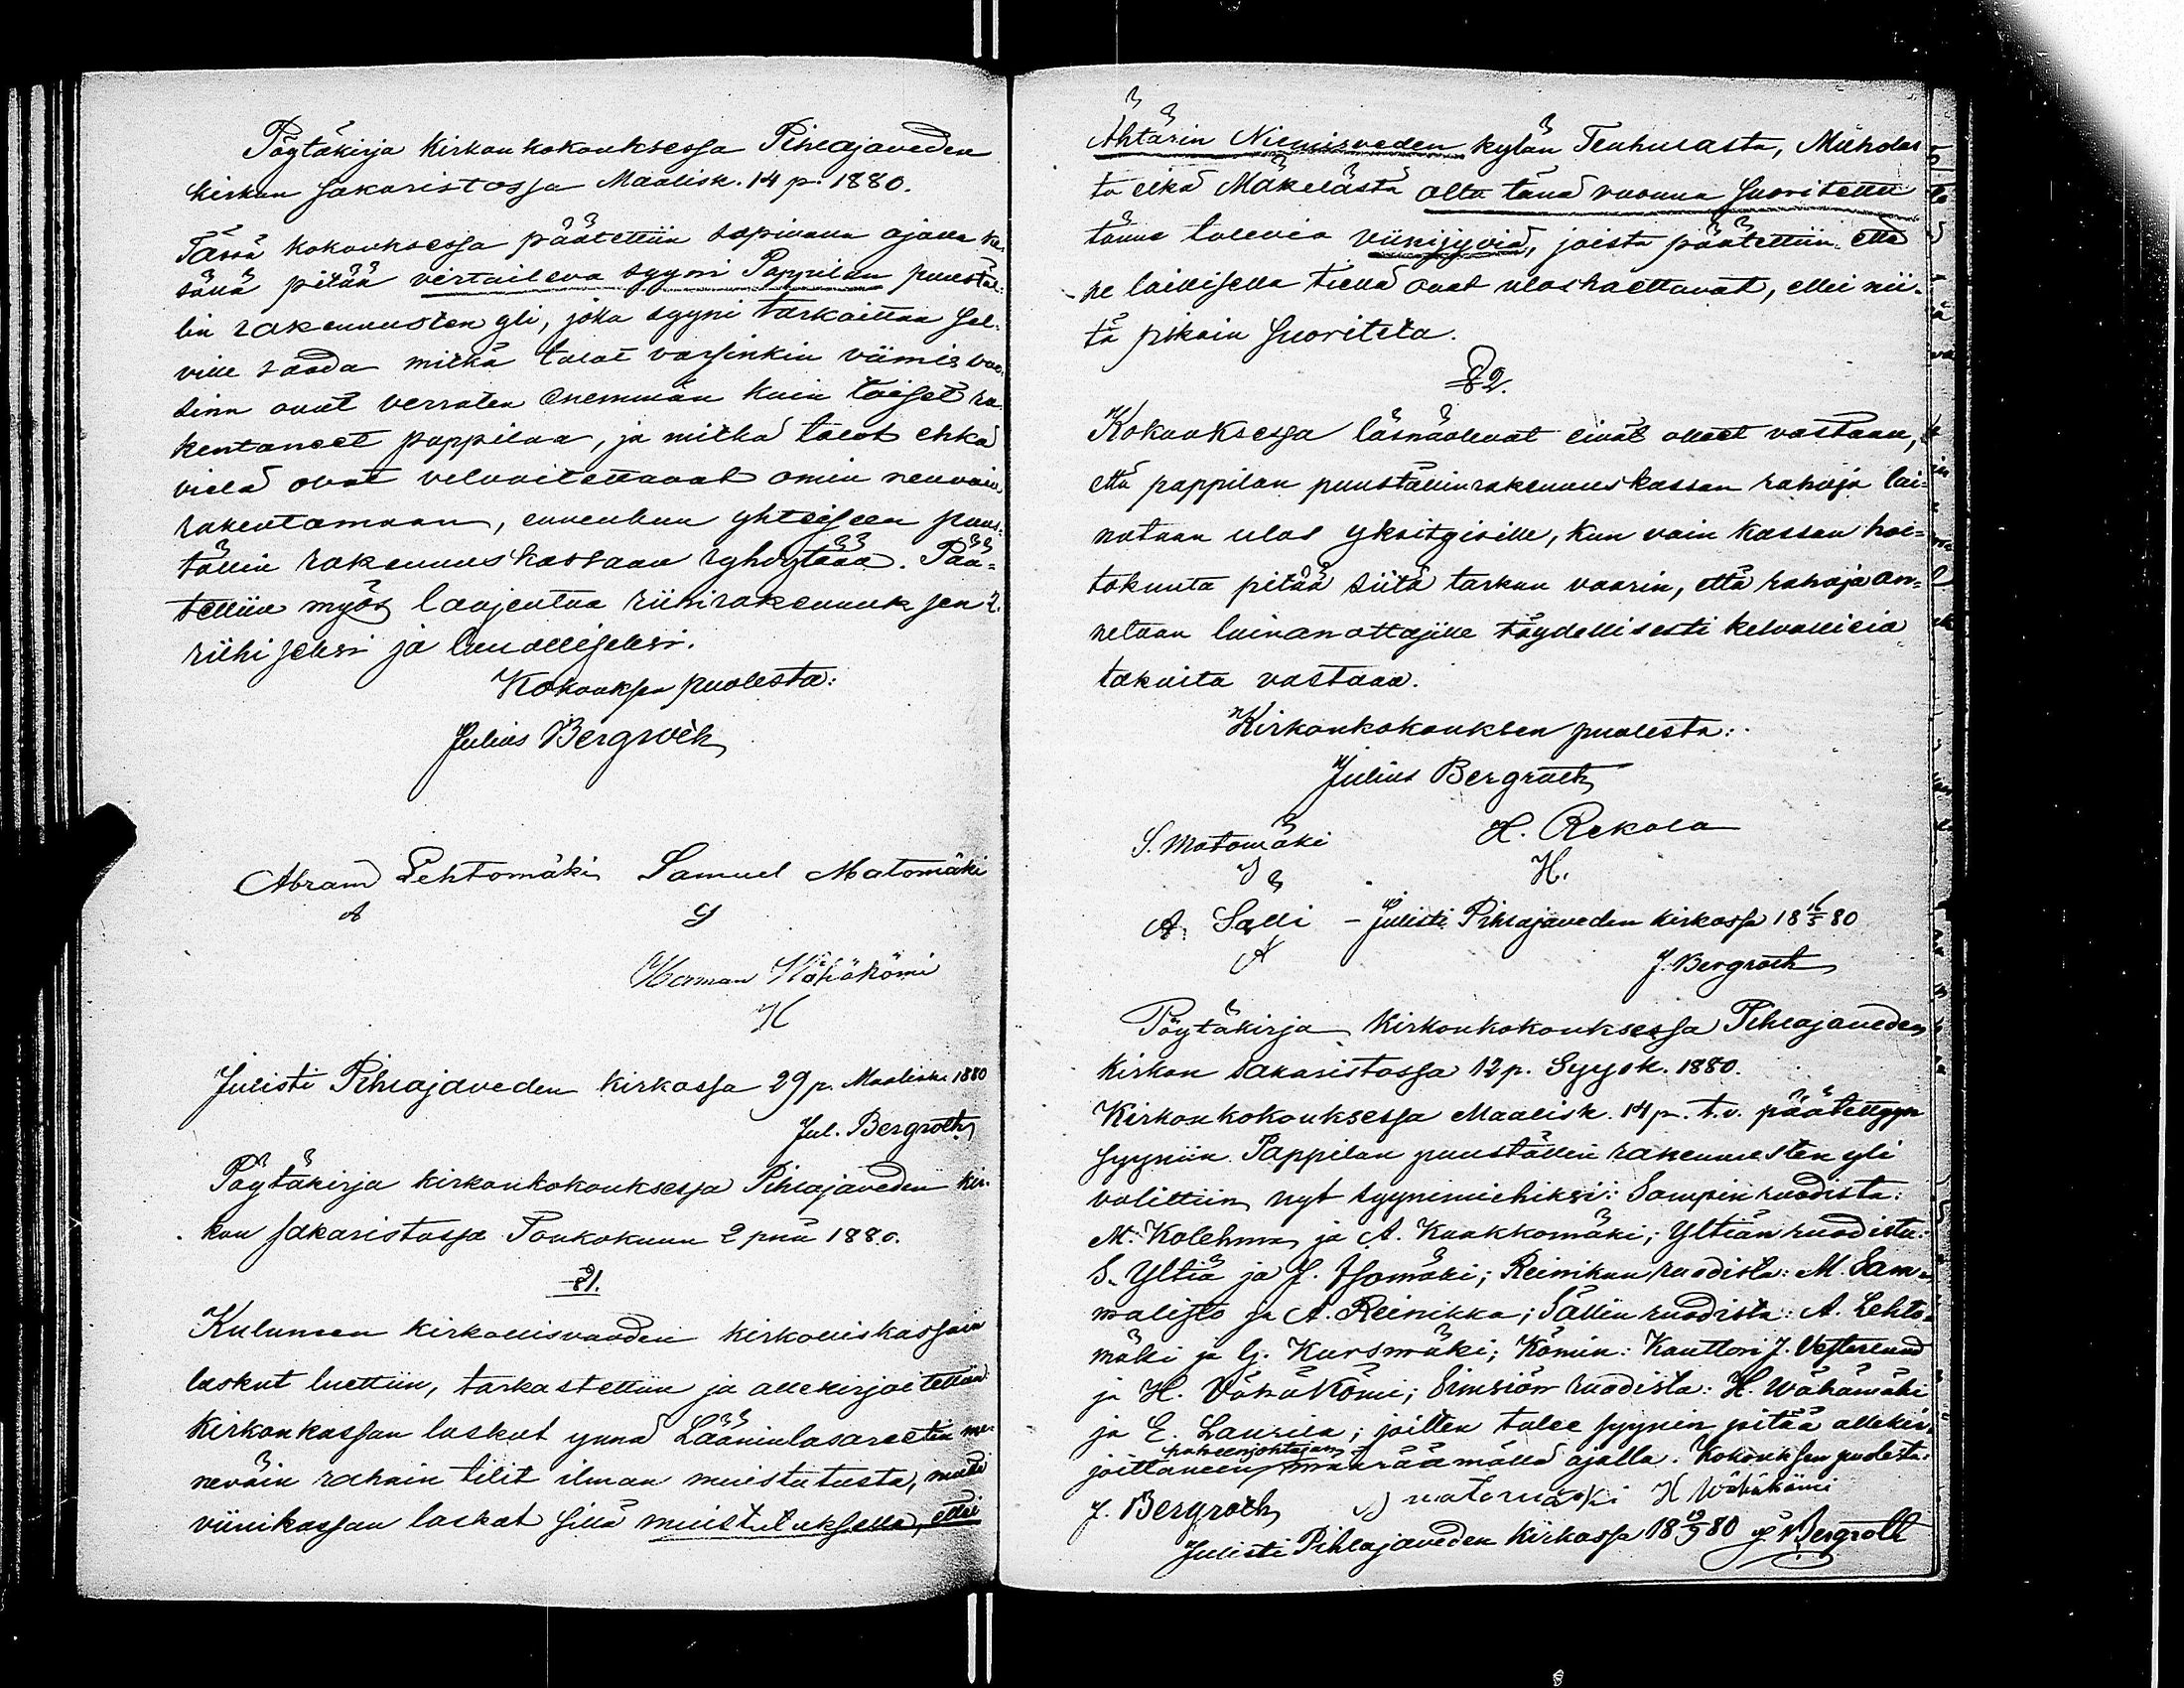 Pöytäkirja Kirkonkokouksessa Pihlajaveden
kirkon sakaristossa Maalisk. 14 p. 1880.
Tässä kokouksessa päätettiin sopivana ajalla ke-
sällä pitää vertaileva syyni Pappilan puustäl-
lin rakennusten yli, jolla syyni tarkoittaa sel-
ville saada mitkä talot varsinkin viimis vuo-
sina ovat verraten enemmän kuin toiset ra-
kentaneet pappilaa, ja mitkä talot ehkä
vielä ovat velvoitettavat omin neuvoin
rakentamaan, ennenkun yhteiseen puus-
tällin rakennuskassaan ryhdytään. Pää-
tettiin myös laajentaa riihirakennuksen 2.
riihiseksi ja luuvalliseksi.
Kokouksen puolesta:
Julius Bergroth
Abram Lehtomäki Samuel Matomäki
A S
Herman Wähäkömi
H
Julisti Pihlajaveden kirkossa 29 p. Maalisk. 1880
Jul. Bergroth
Pöytäkirja kirkonkokouksessa Pihlajaveden kir-
kon sakaristossa Toukokuun 2 pnä 1880.
§1.
Kuluneen kirkollisvuoden kirkolliskassain
laskut luettiin, tarkastettiin ja allekirjoitettiin
Kirkonkassan laskut ynnä Lääninlasarettiin me-
neväin rahain tilit ilman muistutusta, mutta
viinikassan laskut sillä muistutuksella, ettei
Ähtärin Niemisveden kylän Tenhusasta, Mäiholas
ta eikä Mäkelästä oltu tänä vuonna suoritettu
tänne tulevia viinijyviä, joista päätettiin että
ne laillisella tiellä ovat uloshaettavat, ellei nii-
tä pikain suoriteta.
§2.
Kokouksessa läsnäolevat eivät olleet vastaan,
että pappilan puuställinrakennuskassan rahoja lai-
nataan ulos yksityisille, kun vain kassan hoi-
tokunta pitää siitä tarkan vaarin, että rahoja an-
netaan lainanottajille täydellisesti kelvollisia
takuita vastaan.
Kirkonkokouksen puolesta:
Julius Bergroth
S. Matomäki H. Rekola
S H.
A. Salli – Julisti Pihlajaveden kirkossa 18 16/5 80
A J. Bergroth
Pöytäkirja Kirkonkokouksessa Pihlajaveden
kirkon sakaristossa 12 p. Syysk. 1880.
Kirkonkokouksessa Maalisk. 14 p. t.v. päätettyyn
syyniin Pappilan puuställin rakennusten yli
valittiin nyt syynimiehiksi: Sompin ruodista:
M. Kolehma ja A. Kuakkomäki; Yltiän ruodista:
S. Yltiä ja J. Isomäki; Reinikan ruodista: M. Sam-
malisto ja A. Reinikka; Sällin ruodista: A. Lehto-
mäki ja G. Kursmäki; Kömin: Kanttori J. Vesterlund
ja H. Vähäkömi; Simsiön ruodista: H. Wähämäki
ja E. Laurila; joitten tulee syynin pitää allekir-
puheenjohtajan
joittaneen määräämällä ajalla. Kokouksen puolesta:
J. Bergroth S matomäki H Wähäkömi
Julisti Pihlajaveden kirkossa 18 19/9 80 J. Bergroth